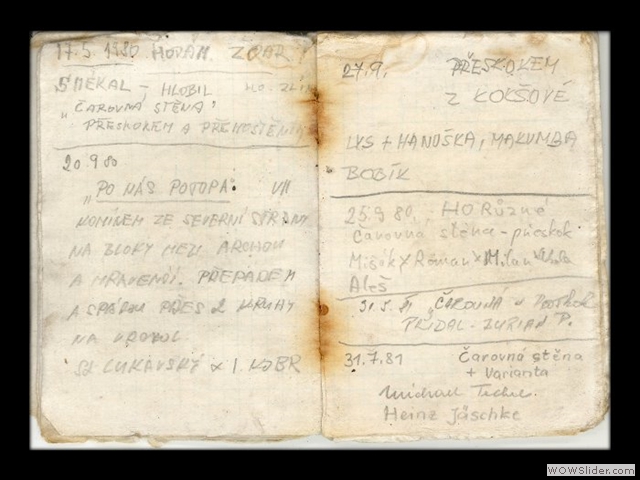 17.5 1980 HORÁM ZDAR
SMEKAL - HLOBIL HO. ZLÍN
"ČAROVNÁ STĚNA"
PŘESKOKEM A PŘEMOSTĚNÍM
20.9 80
"PO NÁS POTOPA" VII
KOMÍNEM ZE SEVERNÍ STRANY
NA BLOKY MEZI
A MRAVENČÍ. PŘEPADEM
A SPÁROU PŘES 2 KRUHY
NA VRCHOL
LUKAVSKÝ
27.9. PŘESKOKEM
Z KOKŠOVÉ
+ HANOŠKA, MAKUMBA
BOBÍK
25.9 80, HO Různá
Čarovná stěna - přeskok
Mišík x Roman x Milan x
Aleš
31.5. 81 "ČAROVNÁ
PŘIDAL -
31.7.81 Čarovná stěna
+ Varianta
Michael
Heinz Jäschke
WOWSlider.com